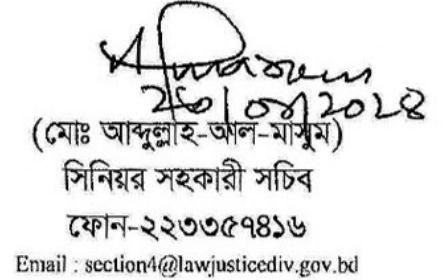 (মোঃ আব্দুল্লাহ-আল-মাসুম)
সিনিয়র সহকারী সচিব
ফোন-২২৩৩৫৭৪১৬
Email : section4@lawjusticediv.gov.bd